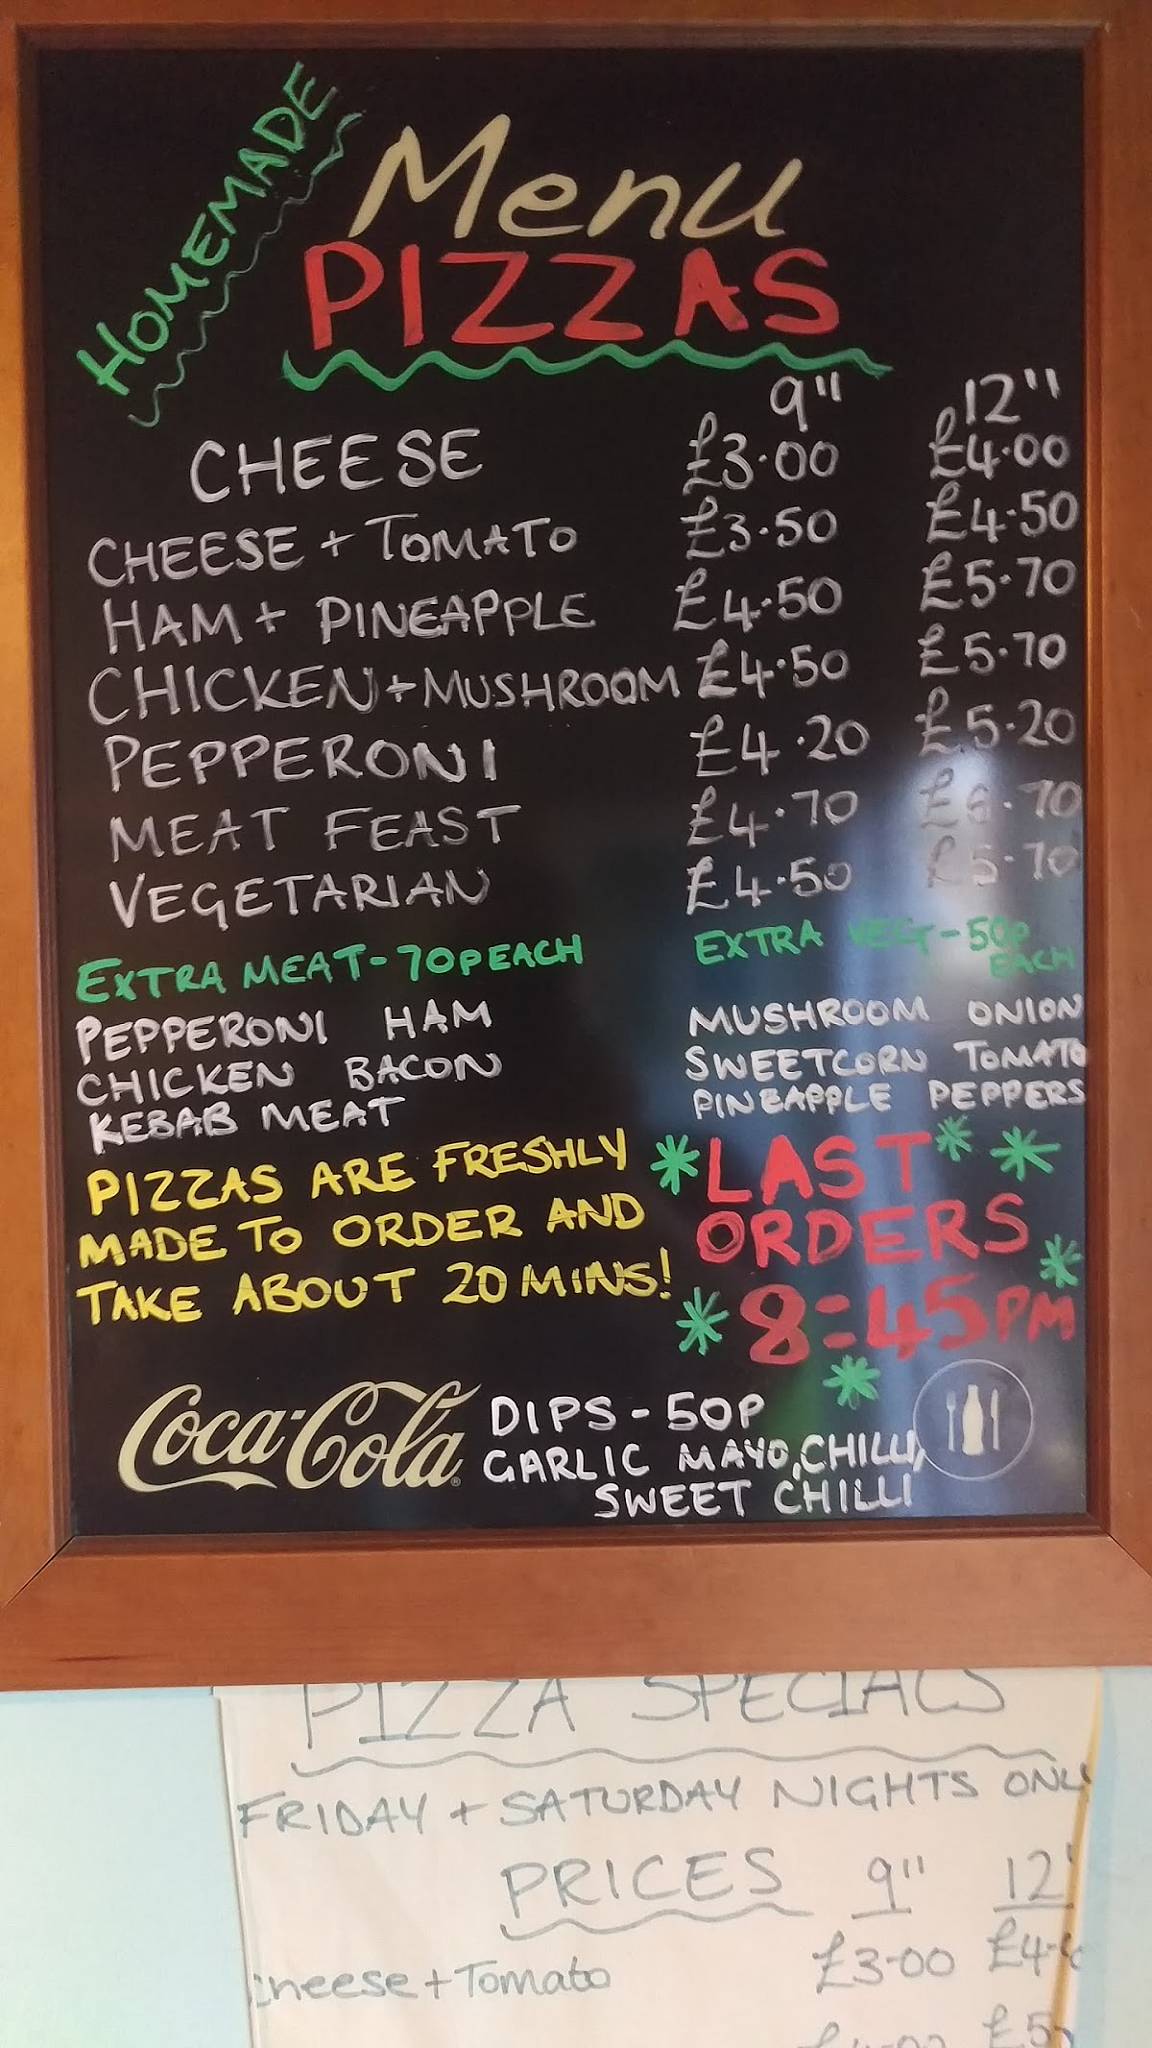 HOMEMADE
Menu
PIZZAS
9" 12"
CHEESE £3.00 £4.00
CHEESE + TOMATO £3.50 £4.50
HAM + PINEAPPLE £4.50 £5.70
CHICKEN + MUSHROOM £4.50 £5.70
PEPPERONI £4.20 £5.20
MEAT FEAST £4.70
VEGETARIAN £4.50 £5.70
EXTRA MEAT - 70P EACH
PEPPERONI HAM
CHICKEN BACON
KEBAB MEAT
EXTRA VEG - 50P
EACH
MUSHROOM ONION
SWEETCORN TOMATO
PINEAPPLE PEPPERS
PIZZAS ARE FRESHLY
MADE TO ORDER AND
TAKE ABOUT 20 MINS!
LAST
ORDERS
8:45PM
Coca-Cola
DIPS - 50P
GARLIC MAYO, CHILLI,
SWEET CHILLI
PIZZA SPECIALS
FRIDAY + SATURDAY NIGHTS
PRICES 9" 12
Cheese + Tomato £3.00